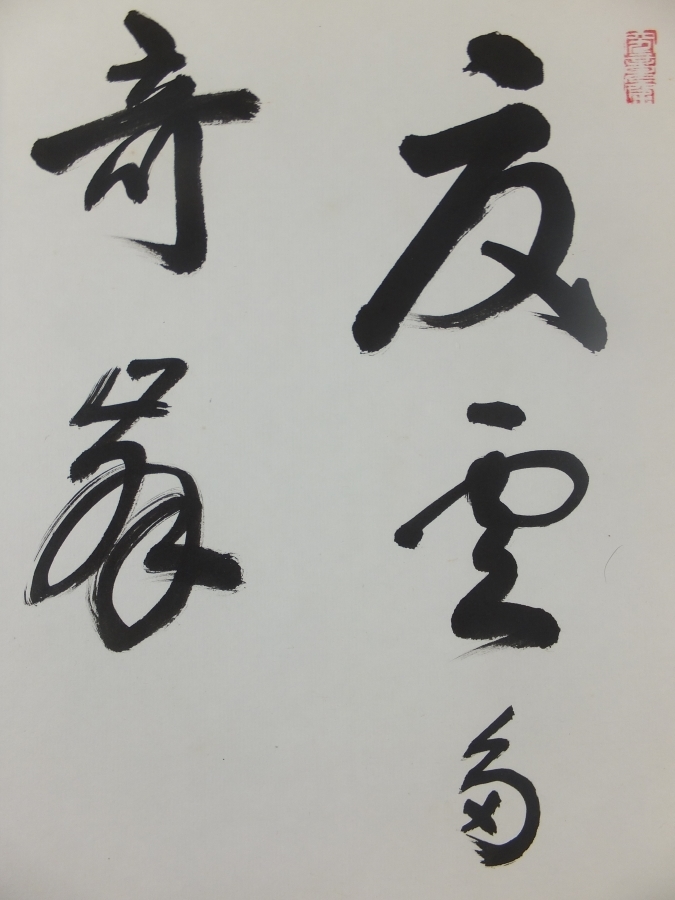 夏雲多
奇峯